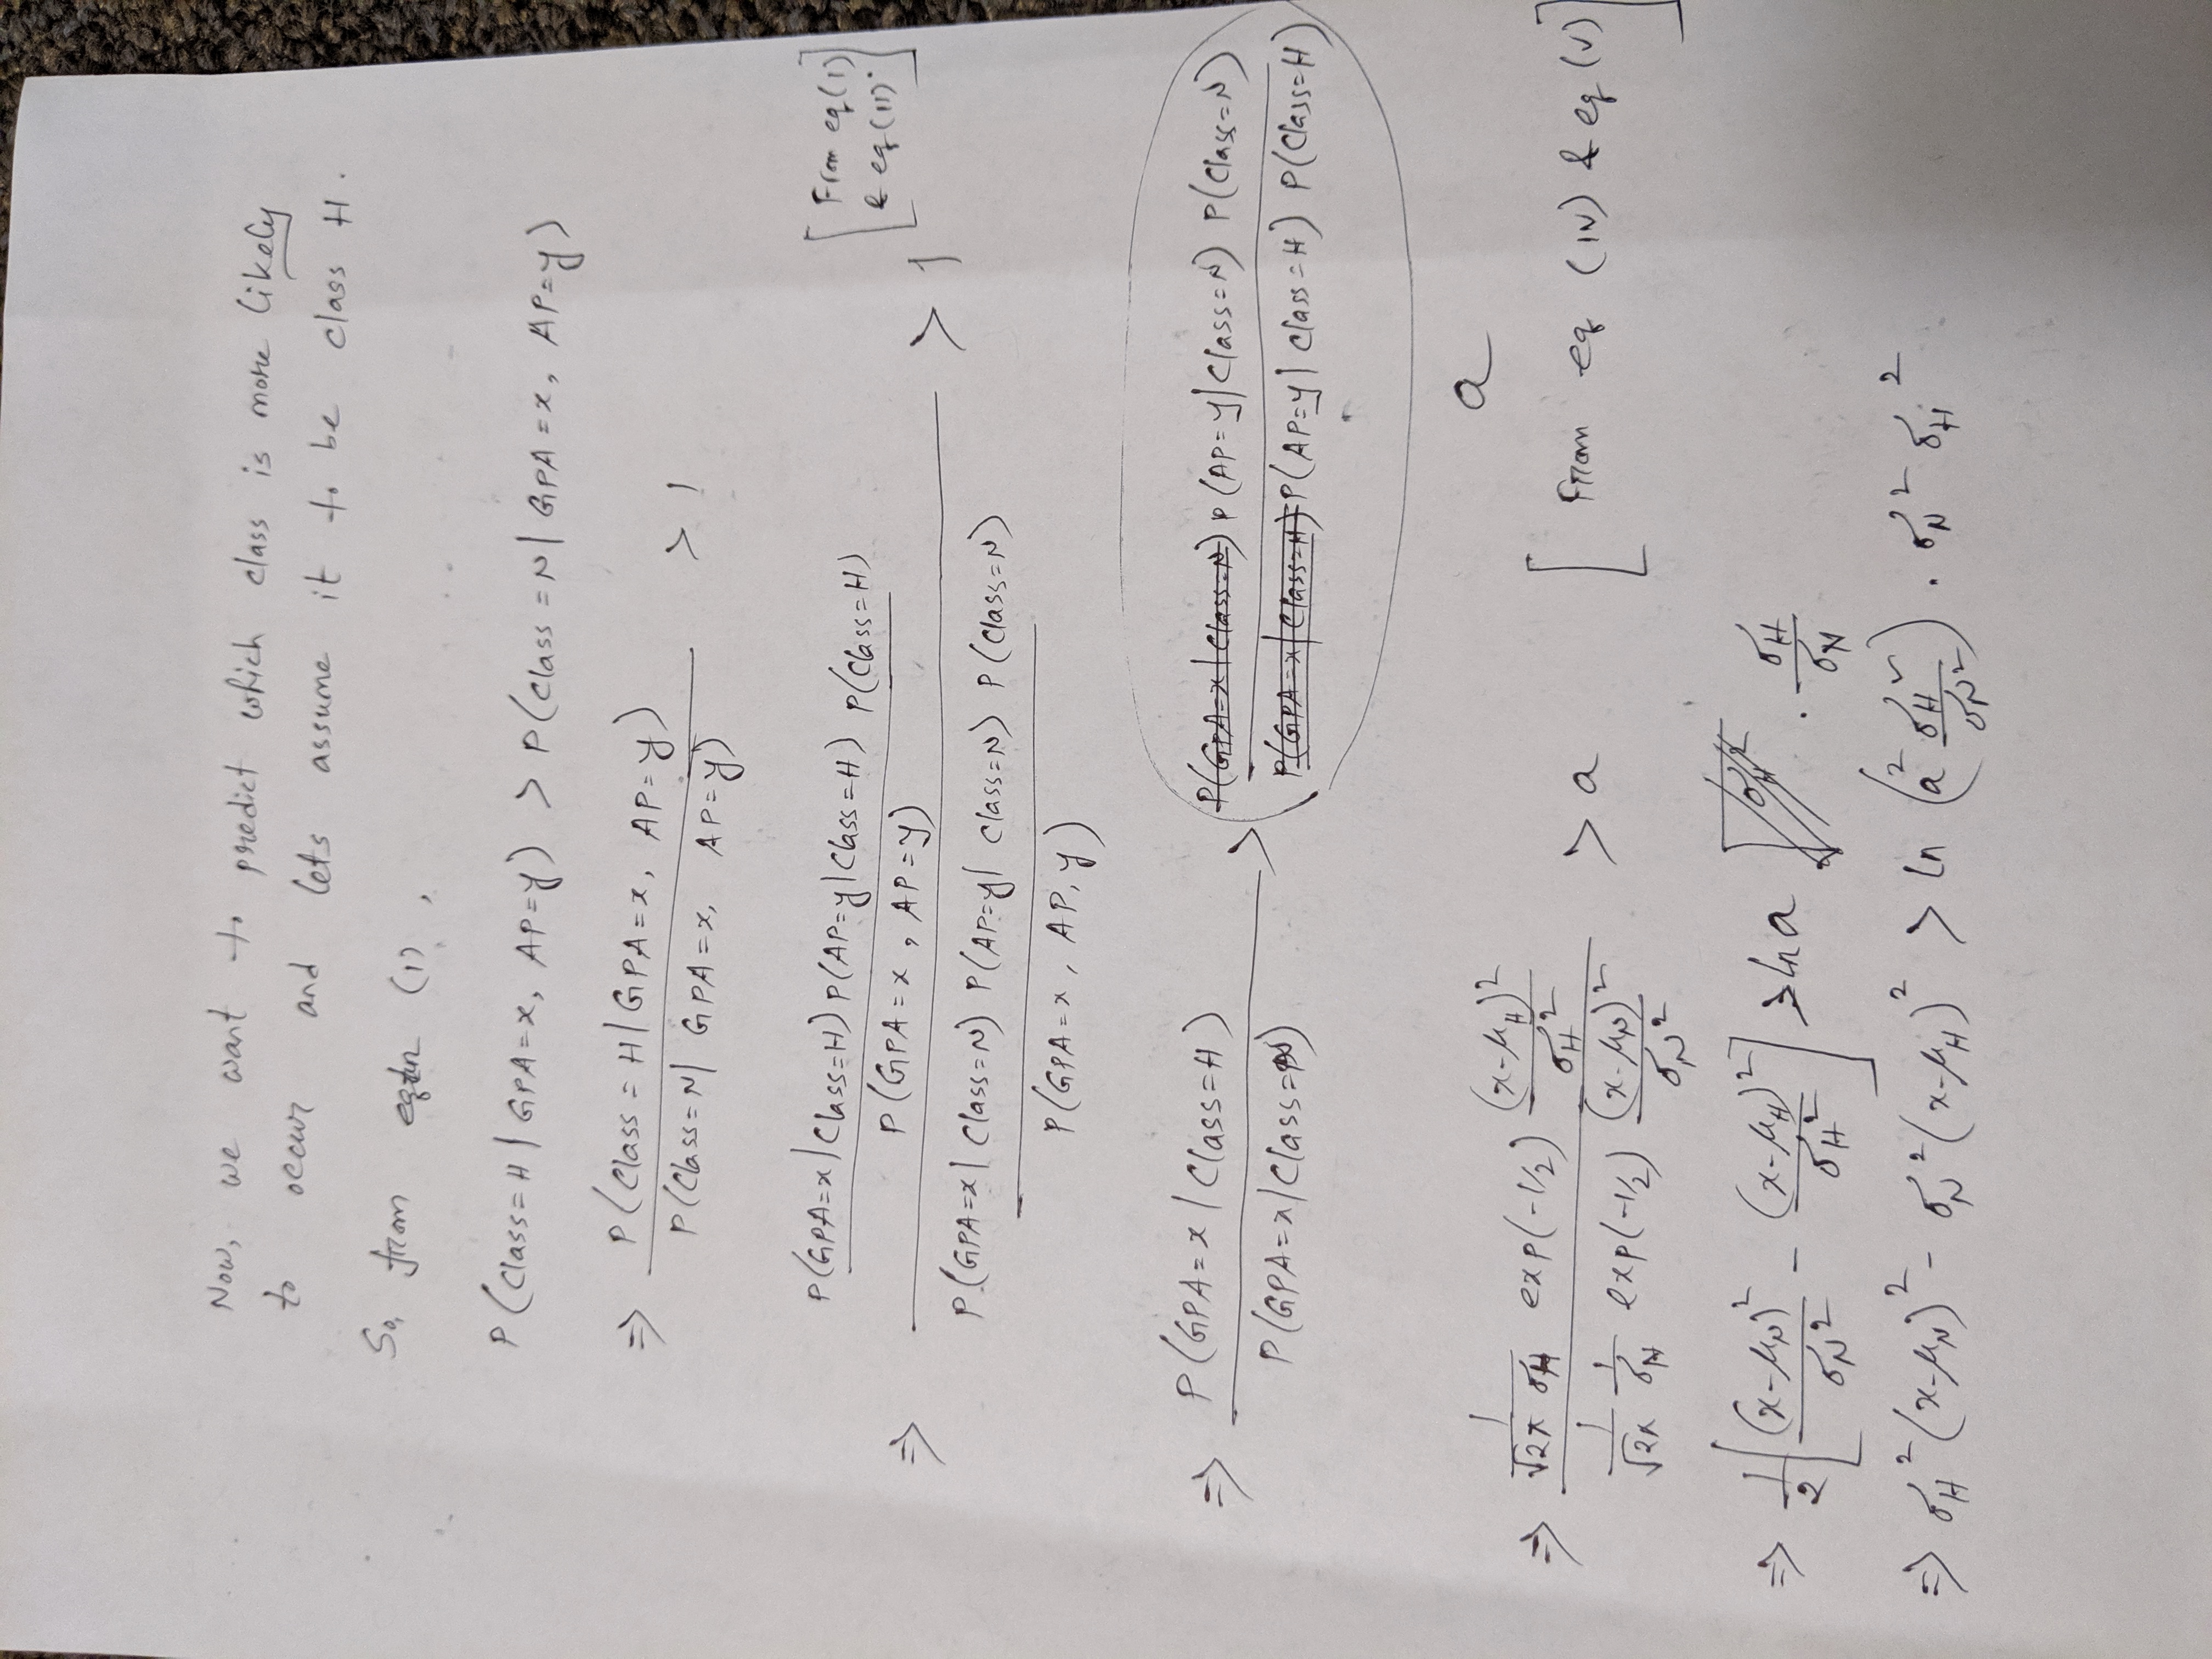 Now, we want to predict which class is more likely
to occur and lets assume it to be class H.
So, from eqtn (1),
P(Class=H | GPA=x, AP=y) > P(Class=N | GPA=x, AP=y)
⇒ P(Class = H | GPA=x, AP=y) / P(Class=N | GPA=x, AP=y) > 1
⇒ P(GPA=x | Class=H) P(AP=y | Class=H) P(Class=H)
P(GPA=x, AP=y)
P(GPA=x | Class=N) P(AP=y | Class=N) P(Class=N)
P(GPA=x, AP,y)
> 1
[From eq(1)
& eq(11).]
⇒ P(GPA=x | Class=H) / P(GPA=x | Class=N) > P(GPA=x | Class=N) P(AP=y | Class=N) P(Class=N) / P(GPA=x | Class=H) P(AP=y | Class=H) P(Class=H)
a
⇒ 1/(√2π σH) exp(-1/2) (x-μH)²/σH² / 1/√2π 1/σN exp(-1/2) (x-μN)²/σN² > a [From eq (IV) & eq(V)]
⇒ 1/2 [(x-μN)²/σN² - (x-μH)²/σH²] > ln a · σH/σN
⇒ σH² (x-μN)² - σN² (x-μH)² > ln (a² σH²/σN²) · σN² σH²